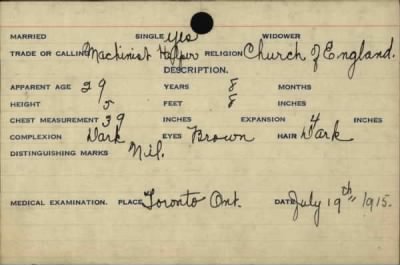 MARRIED SINGLE yes WIDOWER
TRADE OR CALLING Machinist Helper RELIGION Church of England.
DESCRIPTION.
APPARENT AGE 29 YEARS 8 MONTHS
HEIGHT 5 FEET 8 INCHES
CHEST MEASUREMENT 39 INCHES EXPANSION 4 INCHES
COMPLEXION Dark EYES Brown HAIR Dark
DISTINGUISHING MARKS Nil.
MEDICAL EXAMINATION. PLACE Toronto Ont. DATE July 19th 1915.